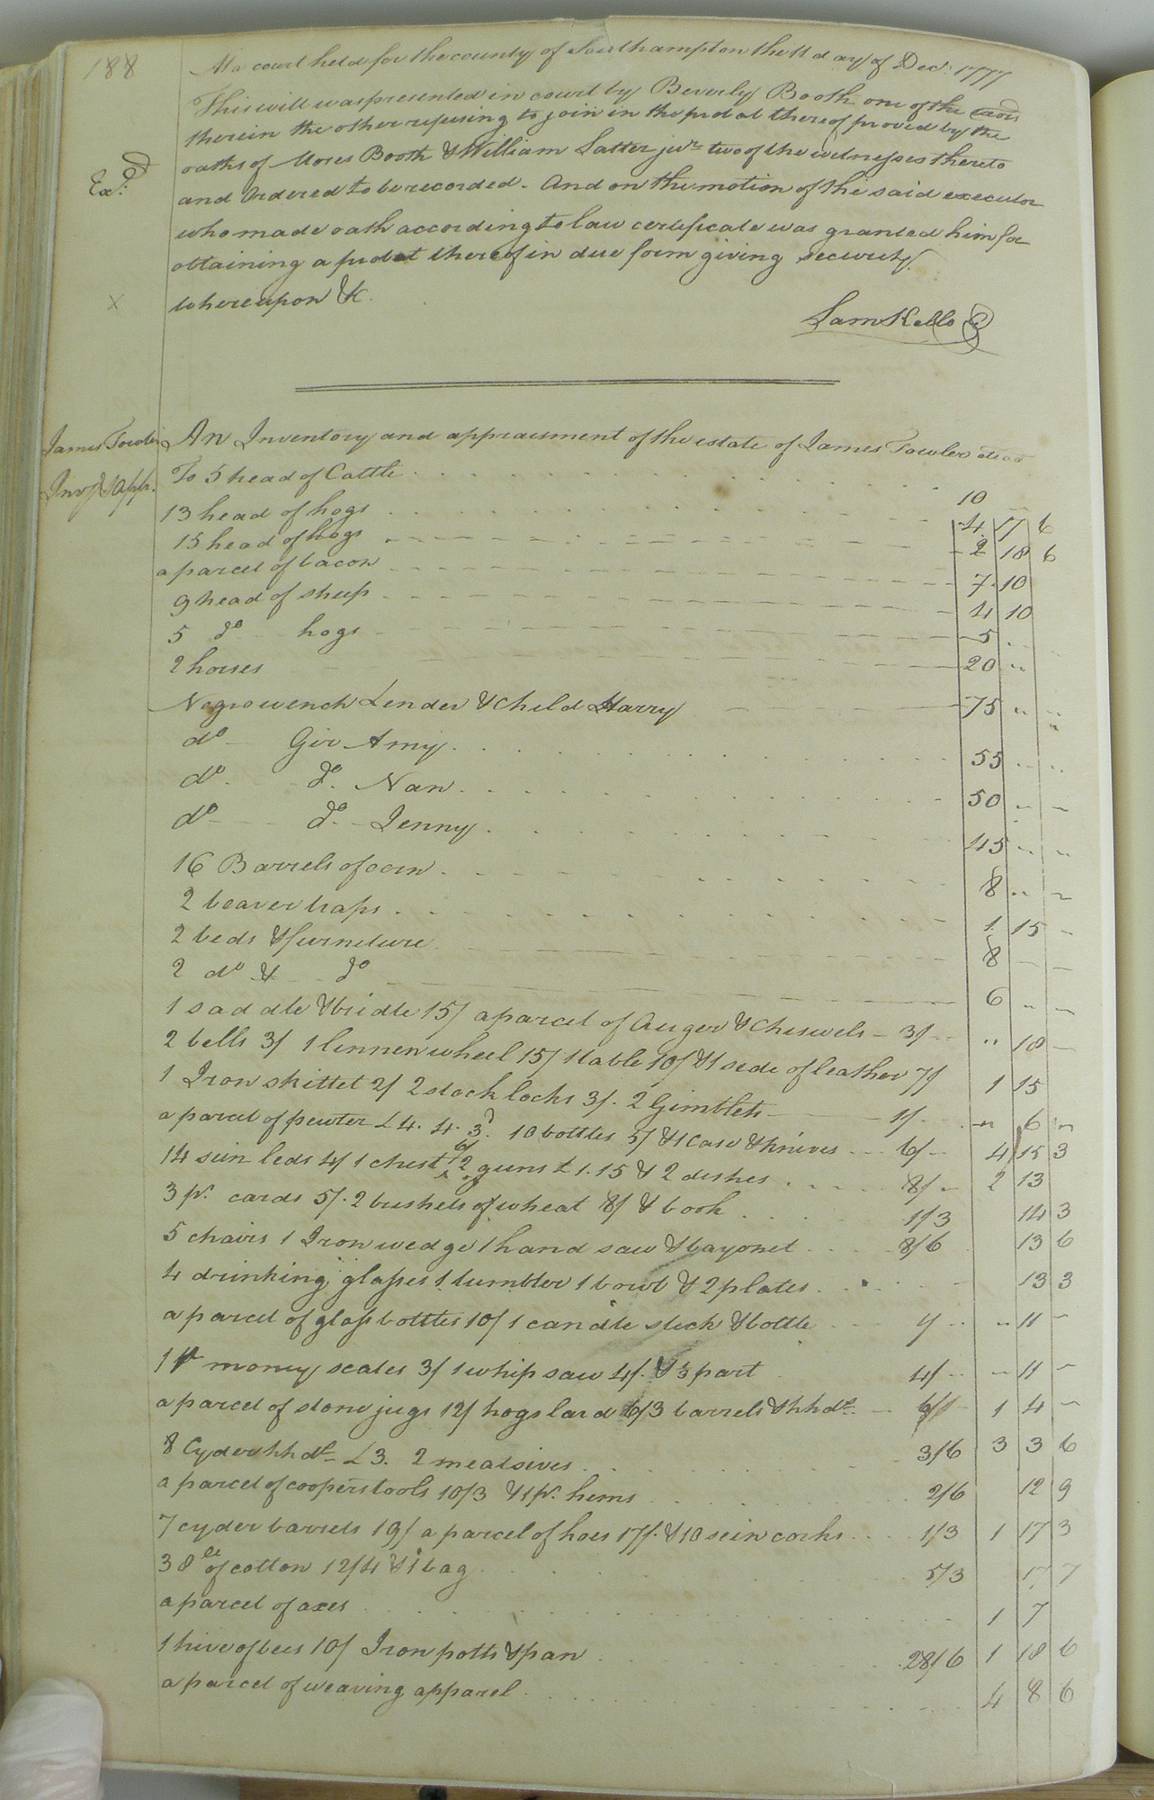 188
At a court held for the county of Southampton the 11 day of Decr. 1777
This will was presented in court by Beverly Booth one of the exors
therein the other refusing to join in the probat thereof proved by the
oaths of Moses Booth & William Satter junr two of the witnesses thereto
Exd.
and Ordered to be recorded. And on the motion of the said executor
who made oath according to law certificate was granted him for
obtaining a probat thereof in due form giving security.
x
whereupon &c.
Sam Kello C
James Fowler
Invy & Appr.
An Inventory and appraisment of the estate of James Fowler decd
To 5 head of Cattle 10
13 head of hogs 4 17 6
15 head of hogs 2 18 6
a parcel of bacon 7 10
9 head of sheep 4 10
5 do hogs 5
2 horses 20 ..
Negro wench Lender & Child Harry 75 .. ..
do Gir Amy 55 .. ..
do do Nan 50 .. ..
do do Jenny 45 .. ..
16 Barrels of corn 8 .. ..
2 beaver traps 1 15 -
2 beds & furneture 8 - -
2 do & do 6 .. -
1 saddle & bridle 15/ a parcel of Auger & Cheswels - 3/ .. 18 -
2 bells 3/ 1 linnen wheel 15/ 1 table 10/ & 1 side of leather 7/ 1 15
1 Iron skittet 2/ 2 stock locks 3/. 2 Gimblets 1/ .. 6 ..
a parcel of pewter £4. 4. 3d. 10 bottles 5/ & 1 case & knives 6/ 4 15 3
14 sein leds 4/ 1 chest 6/ 2 guns £1.15 & 2 dishes 8/ 2 13
3 pr. cards 5/. 2 bushels of wheat 8/ & book 1/3 14 3
5 chairs 1 Iron wedge 1 hand saw & bayonet 8/6 13 6
4 drinking glasses 1 tumbler 1 bowl & 2 plates 13 3
a parcel of glass bottles 10/ 1 candle stick & bottle 1/ .. 11 -
1 pr money scales 3/ 1 whip saw 4/. & 3 part 4/ - 11 -
a parcel of stone jugs 12/ hogs lard 6/ 3 barrels & hhds. 6/ 1 4 -
8 Cyder hhds £3. 2 meal sives 3/6 3 3 6
a parcel of coopers tools 10/3 & 1 pr. hems 2/6 12 9
7 cyder barrels 19/ a parcel of hoes 17/. & 10 sein corks 1/3 1 17 3
38 lb of cotton 12/4 & 1 bag 5/3 17 7
a parcel of axes 1 7
1 hive of bees 10/ Iron potts & pan 28/6 1 18 6
a parcel of weaving apparel 4 8 6